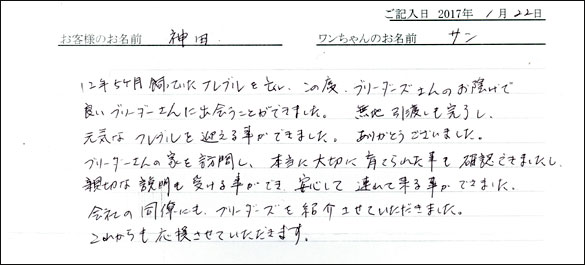 ご記入日 2017年 1月 22日
お客様のお名前 神田 ワンちゃんのお名前 サン
12年5ヶ月飼っていたフレブルを亡い、この度、ブリーダーズさんのお陰げで
良いブリーダーさんに出会うことができました。 無地引渡しも完了し、
元気なフレブルを迎える事ができました。 ありがとうございました。
ブリーダーさんの家を訪問し、本当に大切に育てられた事も確認できましたし、
親切な説明も受ける事ができ 安心して 連れて来る事ができました。
会社の同僚にも、ブリーダーズを紹介させていただきました。
これからも応援させていただきます。